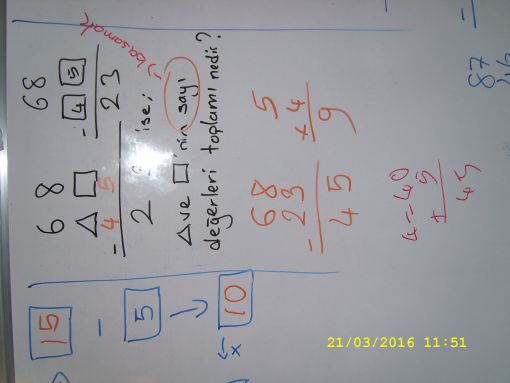 6 8
△ □
4 5
-
2 ise;
68
- 4 5
23
→ basamak
△ ve □ nin sayı
değerleri toplamı nedir?
68
- 23
45
5
+ 4
9
4 → 40
5
+
45
15
-
5
10
x
87
21/03/2016 11:51